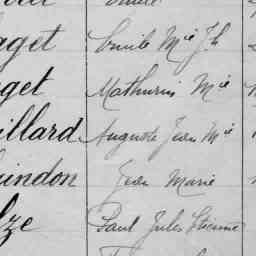 aget Emile Mie Jh
get Mathurin Mie
illard Auguste Jean Mie
uindon Jean Marie
lze Paul Jules Etienne